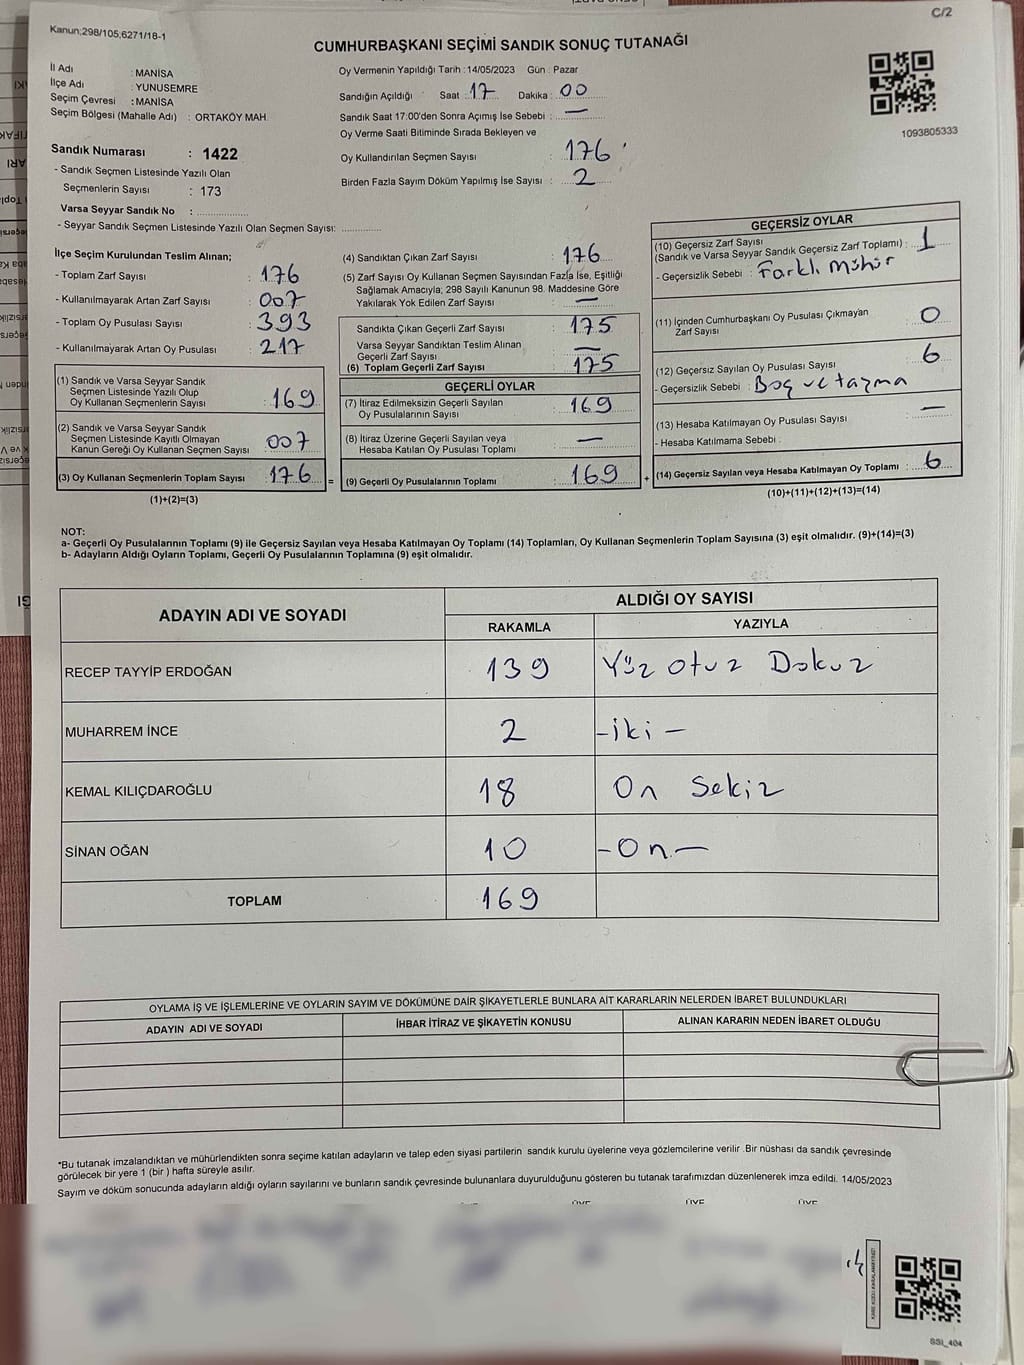 C/2
Kanun;298/105;6271/18-1
CUMHURBAŞKANI SEÇİMİ SANDIK SONUÇ TUTANAĞI
İl Adı : MANİSA
İlçe Adı : YUNUSEMRE
Seçim Çevresi : MANİSA
Seçim Bölgesi (Mahalle Adı) : ORTAKÖY MAH.
Sandık Numarası : 1422
- Sandık Seçmen Listesinde Yazılı Olan
Seçmenlerin Sayısı : 173
Varsa Seyyar Sandık No :
- Seyyar Sandık Seçmen Listesinde Yazılı Olan Seçmen Sayısı:
Oy Vermenin Yapıldığı Tarih : 14/05/2023 Gün : Pazar
Sandığın Açıldığı Saat 17 Dakika : 00
Sandık Saat 17:00'den Sonra Açımış İse Sebebi : —
Oy Verme Saati Bitiminde Sırada Bekleyen ve
Oy Kullandırılan Seçmen Sayısı : 176
Birden Fazla Sayım Döküm Yapılmış İse Sayısı : 2
1093805333
İlçe Seçim Kurulundan Teslim Alınan;
- Toplam Zarf Sayısı : 176
- Kullanılmayarak Artan Zarf Sayısı : 007
- Toplam Oy Pusulası Sayısı : 393
- Kullanılmayarak Artan Oy Pusulası : 217
(1) Sandık ve Varsa Seyyar Sandık
Seçmen Listesinde Yazılı Olup
Oy Kullanan Seçmenlerin Sayısı : 169
(2) Sandık ve Varsa Seyyar Sandık
Seçmen Listesinde Kayıtlı Olmayan
Kanun Gereği Oy Kullanan Seçmen Sayısı : 007
(3) Oy Kullanan Seçmenlerin Toplam Sayısı : 176 =
(1)+(2)=(3)
(4) Sandıktan Çıkan Zarf Sayısı : 176
(5) Zarf Sayısı Oy Kullanan Seçmen Sayısından Fazla İse, Eşitliği
Sağlamak Amacıyla; 298 Sayılı Kanunun 98. Maddesine Göre
Yakılarak Yok Edilen Zarf Sayısı : —
Sandıkta Çıkan Geçerli Zarf Sayısı : 175
Varsa Seyyar Sandıktan Teslim Alınan
Geçerli Zarf Sayısı : —
(6) Toplam Geçerli Zarf Sayısı : 175
GEÇERLİ OYLAR
(7) İtiraz Edilmeksizin Geçerli Sayılan
Oy Pusulalarının Sayısı : 169
(8) İtiraz Üzerine Geçerli Sayılan veya
Hesaba Katılan Oy Pusulası Toplamı : —
(9) Geçerli Oy Pusulalarının Toplamı : 169 +
GEÇERSİZ OYLAR
(10) Geçersiz Zarf Sayısı
(Sandık ve Varsa Seyyar Sandık Geçersiz Zarf Toplamı) : 1
- Geçersizlik Sebebi : Farklı Mühür
(11) İçinden Cumhurbaşkanı Oy Pusulası Çıkmayan
Zarf Sayısı : 0
(12) Geçersiz Sayılan Oy Pusulası Sayısı : 6
- Geçersizlik Sebebi : Boş ve taşma
(13) Hesaba Katılmayan Oy Pusulası Sayısı : —
- Hesaba Katılmama Sebebi :
(14) Geçersiz Sayılan veya Hesaba Katılmayan Oy Toplamı : 6
(10)+(11)+(12)+(13)=(14)
NOT:
a- Geçerli Oy Pusulalarının Toplamı (9) ile Geçersiz Sayılan veya Hesaba Katılmayan Oy Toplamı (14) Toplamları, Oy Kullanan Seçmenlerin Toplam Sayısına (3) eşit olmalıdır. (9)+(14)=(3)
b- Adayların Aldığı Oyların Toplamı, Geçerli Oy Pusulalarının Toplamına (9) eşit olmalıdır.
ADAYIN ADI VE SOYADI ALDIĞI OY SAYISI
RAKAMLA YAZIYLA
RECEP TAYYİP ERDOĞAN 139 Yüz otuz Dokuz
MUHARREM İNCE 2 - iki -
KEMAL KILIÇDAROĞLU 18 On Sekiz
SİNAN OĞAN 10 - On -
TOPLAM 169
OYLAMA İŞ VE İŞLEMLERİNE VE OYLARIN SAYIM VE DÖKÜMÜNE DAİR ŞİKAYETLERLE BUNLARA AİT KARARLARIN NELERDEN İBARET BULUNDUKLARI
ADAYIN ADI VE SOYADI İHBAR İTİRAZ VE ŞİKAYETİN KONUSU ALINAN KARARIN NEDEN İBARET OLDUĞU
*Bu tutanak imzalandıktan ve mühürlendikten sonra seçime katılan adayların ve talep eden siyasi partilerin sandık kurulu üyelerine veya gözlemcilerine verilir .Bir nüshası da sandık çevresinde
görülecek bir yere 1 (bir ) hafta süreyle asılır.
Sayım ve döküm sonucunda adayların aldığı oyların sayılarını ve bunların sandık çevresinde bulunanlara duyurulduğunu gösteren bu tutanak tarafımızdan düzenlenerek imza edildi. 14/05/2023
ÜYE ÜYE ÜYE
SSİ_404